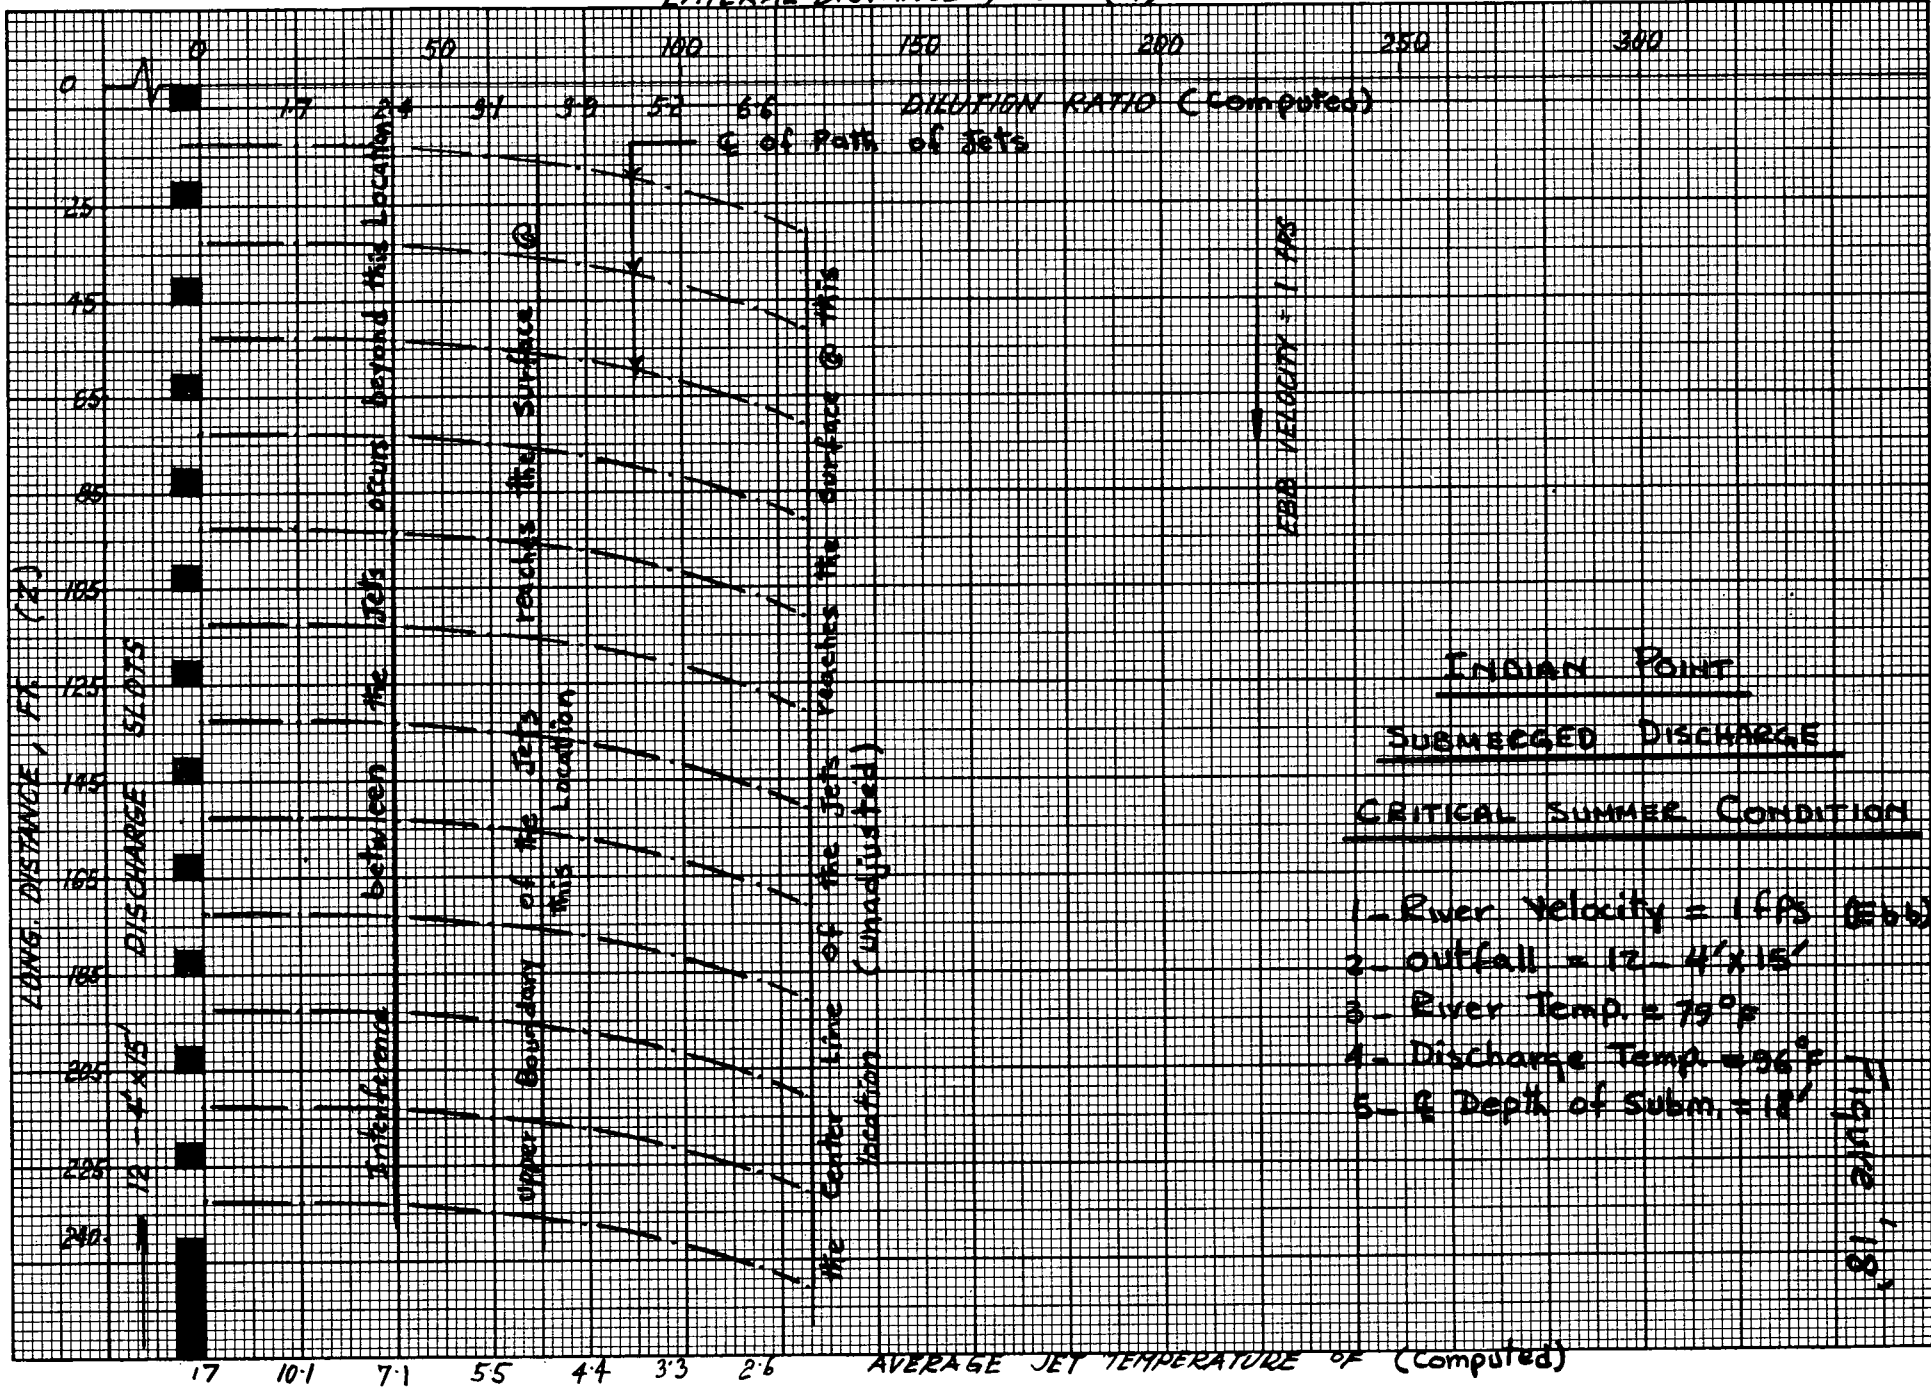 LATERAL DISTANCE, FT.
0 50 100 150 200 250 300
0
1.7 2.4 3.1 3.9 5.2 6.6 DILUTION RATIO (Computed)
℄ of Path of Jets
25
45
65
85
105
125
145
165
185
205
225
240
LONG. DISTANCE, FT. (Z)
12 - 4'x15' DISCHARGE SLOTS
Interference between the Jets occurs beyond this Location
Upper Boundary of the Jets reaches the Surface @
this Location
the Center Line of the Jets reaches the surface @ this
location (unadjusted)
EBB VELOCITY = 1 FPS
INDIAN POINT
SUBMERGED DISCHARGE
CRITICAL SUMMER CONDITION
1- River Velocity = 1 fps (Ebb)
2- outfall = 12- 4'x15'
3- River Temp. = 79°F
4- Discharge Temp. = 96°F
5- ℄ Depth of Subm. = 18'
Figure 18
17 10.1 7.1 5.5 4.4 3.3 2.6 AVERAGE JET TEMPERATURE OF (Computed)